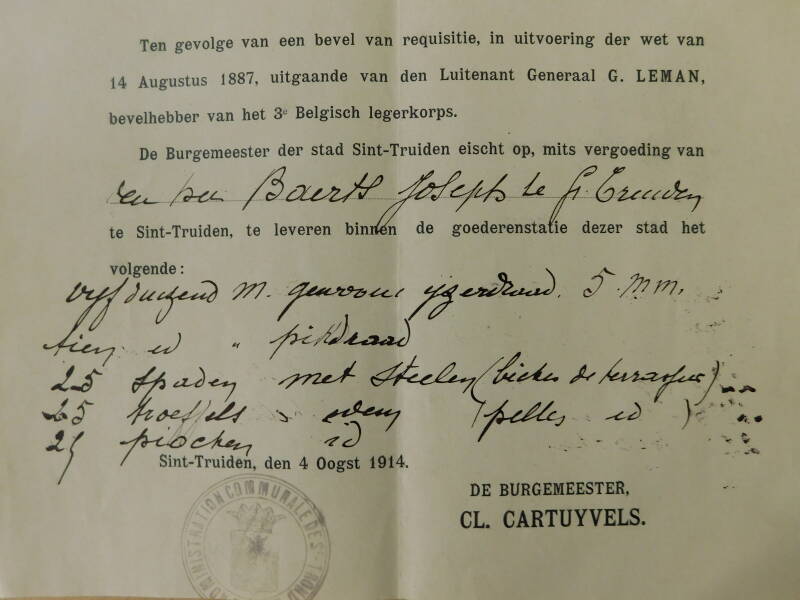 Ten gevolge van een bevel van requisitie, in uitvoering der wet van
14 Augustus 1887, uitgaande van den Luitenant Generaal G. LEMAN,
bevelhebber van het 3e Belgisch legerkorps.
De Burgemeester der stad Sint-Truiden eischt op, mits vergoeding van
Baerts Joseph te St Truiden
te Sint-Truiden, te leveren binnen de goederenstatie dezer stad het
volgende :
vijf duizend m. gewoone yzerdraad. 5 m.m.
tien id " pikdraad
25 spaden met steelen (bêches de terrassier)
25 troeffels idem (pelles id)
25 piocken id
Sint-Truiden, den 4 Oogst 1914.
DE BURGEMEESTER,
CL. CARTUYVELS.
ADMINISTRATION COMMUNALE DE ST TROND